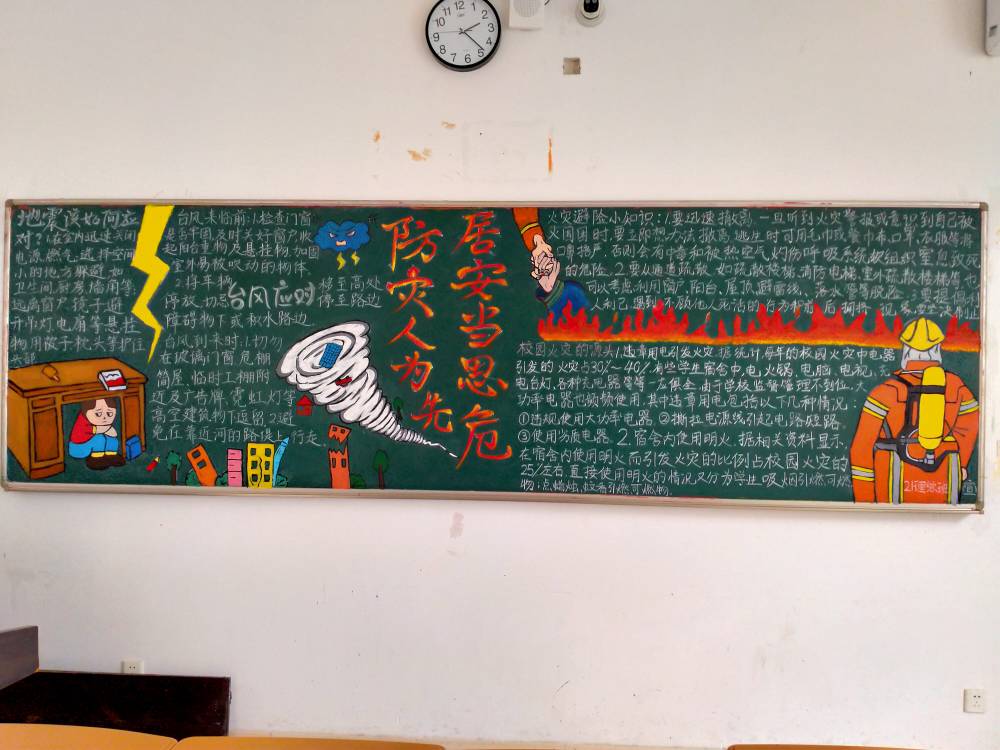 地震该如何应
对？在室内迅速关闭
电源、燃气，选择空间
小的地方躲避，如
卫生间、厨房、内墙等
远离窗户、镜子，避
开吊灯、电扇等悬挂
物，用被子、枕头等护住
头部
台风来临前：1.检查门窗
是否牢固，及时关好窗户，收
起阳台重物及悬挂物，加固
室外易被吹动的物体
将车辆 移至高处
停放，切忌 停至路边
障碍物下或积水路边
台风应对
台风到来时：1.切勿
在玻璃门窗、危棚
简屋、临时工棚附
近及广告牌、霓虹灯等
高空建筑物下逗留，2.避
免在靠近河的路堤上行走
居安当思危
防灾人为先
火灾避险小知识：1.要迅速撤离，一旦听到火灾警报或意识到自己被
火围困时，要立即想办法撤离，逃生时可用毛巾或餐巾布、口罩、衣服等将
口鼻捂严，否则会有中毒和被热空气灼伤呼吸系统软组织窒息致死
的危险。2.要从通道疏散，如疏散楼梯、消防电梯、室外疏散楼梯等，
可以考虑利用窗户、阳台、屋顶、避雷线、落水管等脱险。
校园火灾的源头1.违章用电引发火灾，据统计，每年的校园火灾中电器
引发的火灾占30%~40%，有些学生宿舍中，电火锅、电脑、电视、充
电台灯、各种充电器等等一应俱全，由于学校监督管理不到位，大
功率电器也频频使用，其中违章用电包括以下几种情况：
①违规使用大功率电器，②撕扯电源线引起电路短路，
③使用劣质电器。2.宿舍内使用明火，据相关资料显示，
在宿舍内使用明火而引发火灾的比例占校园火灾的
25%左右，直接使用明火的情况又分为学生吸烟引燃可燃
物；点蜡烛、蚊香引燃可燃物。